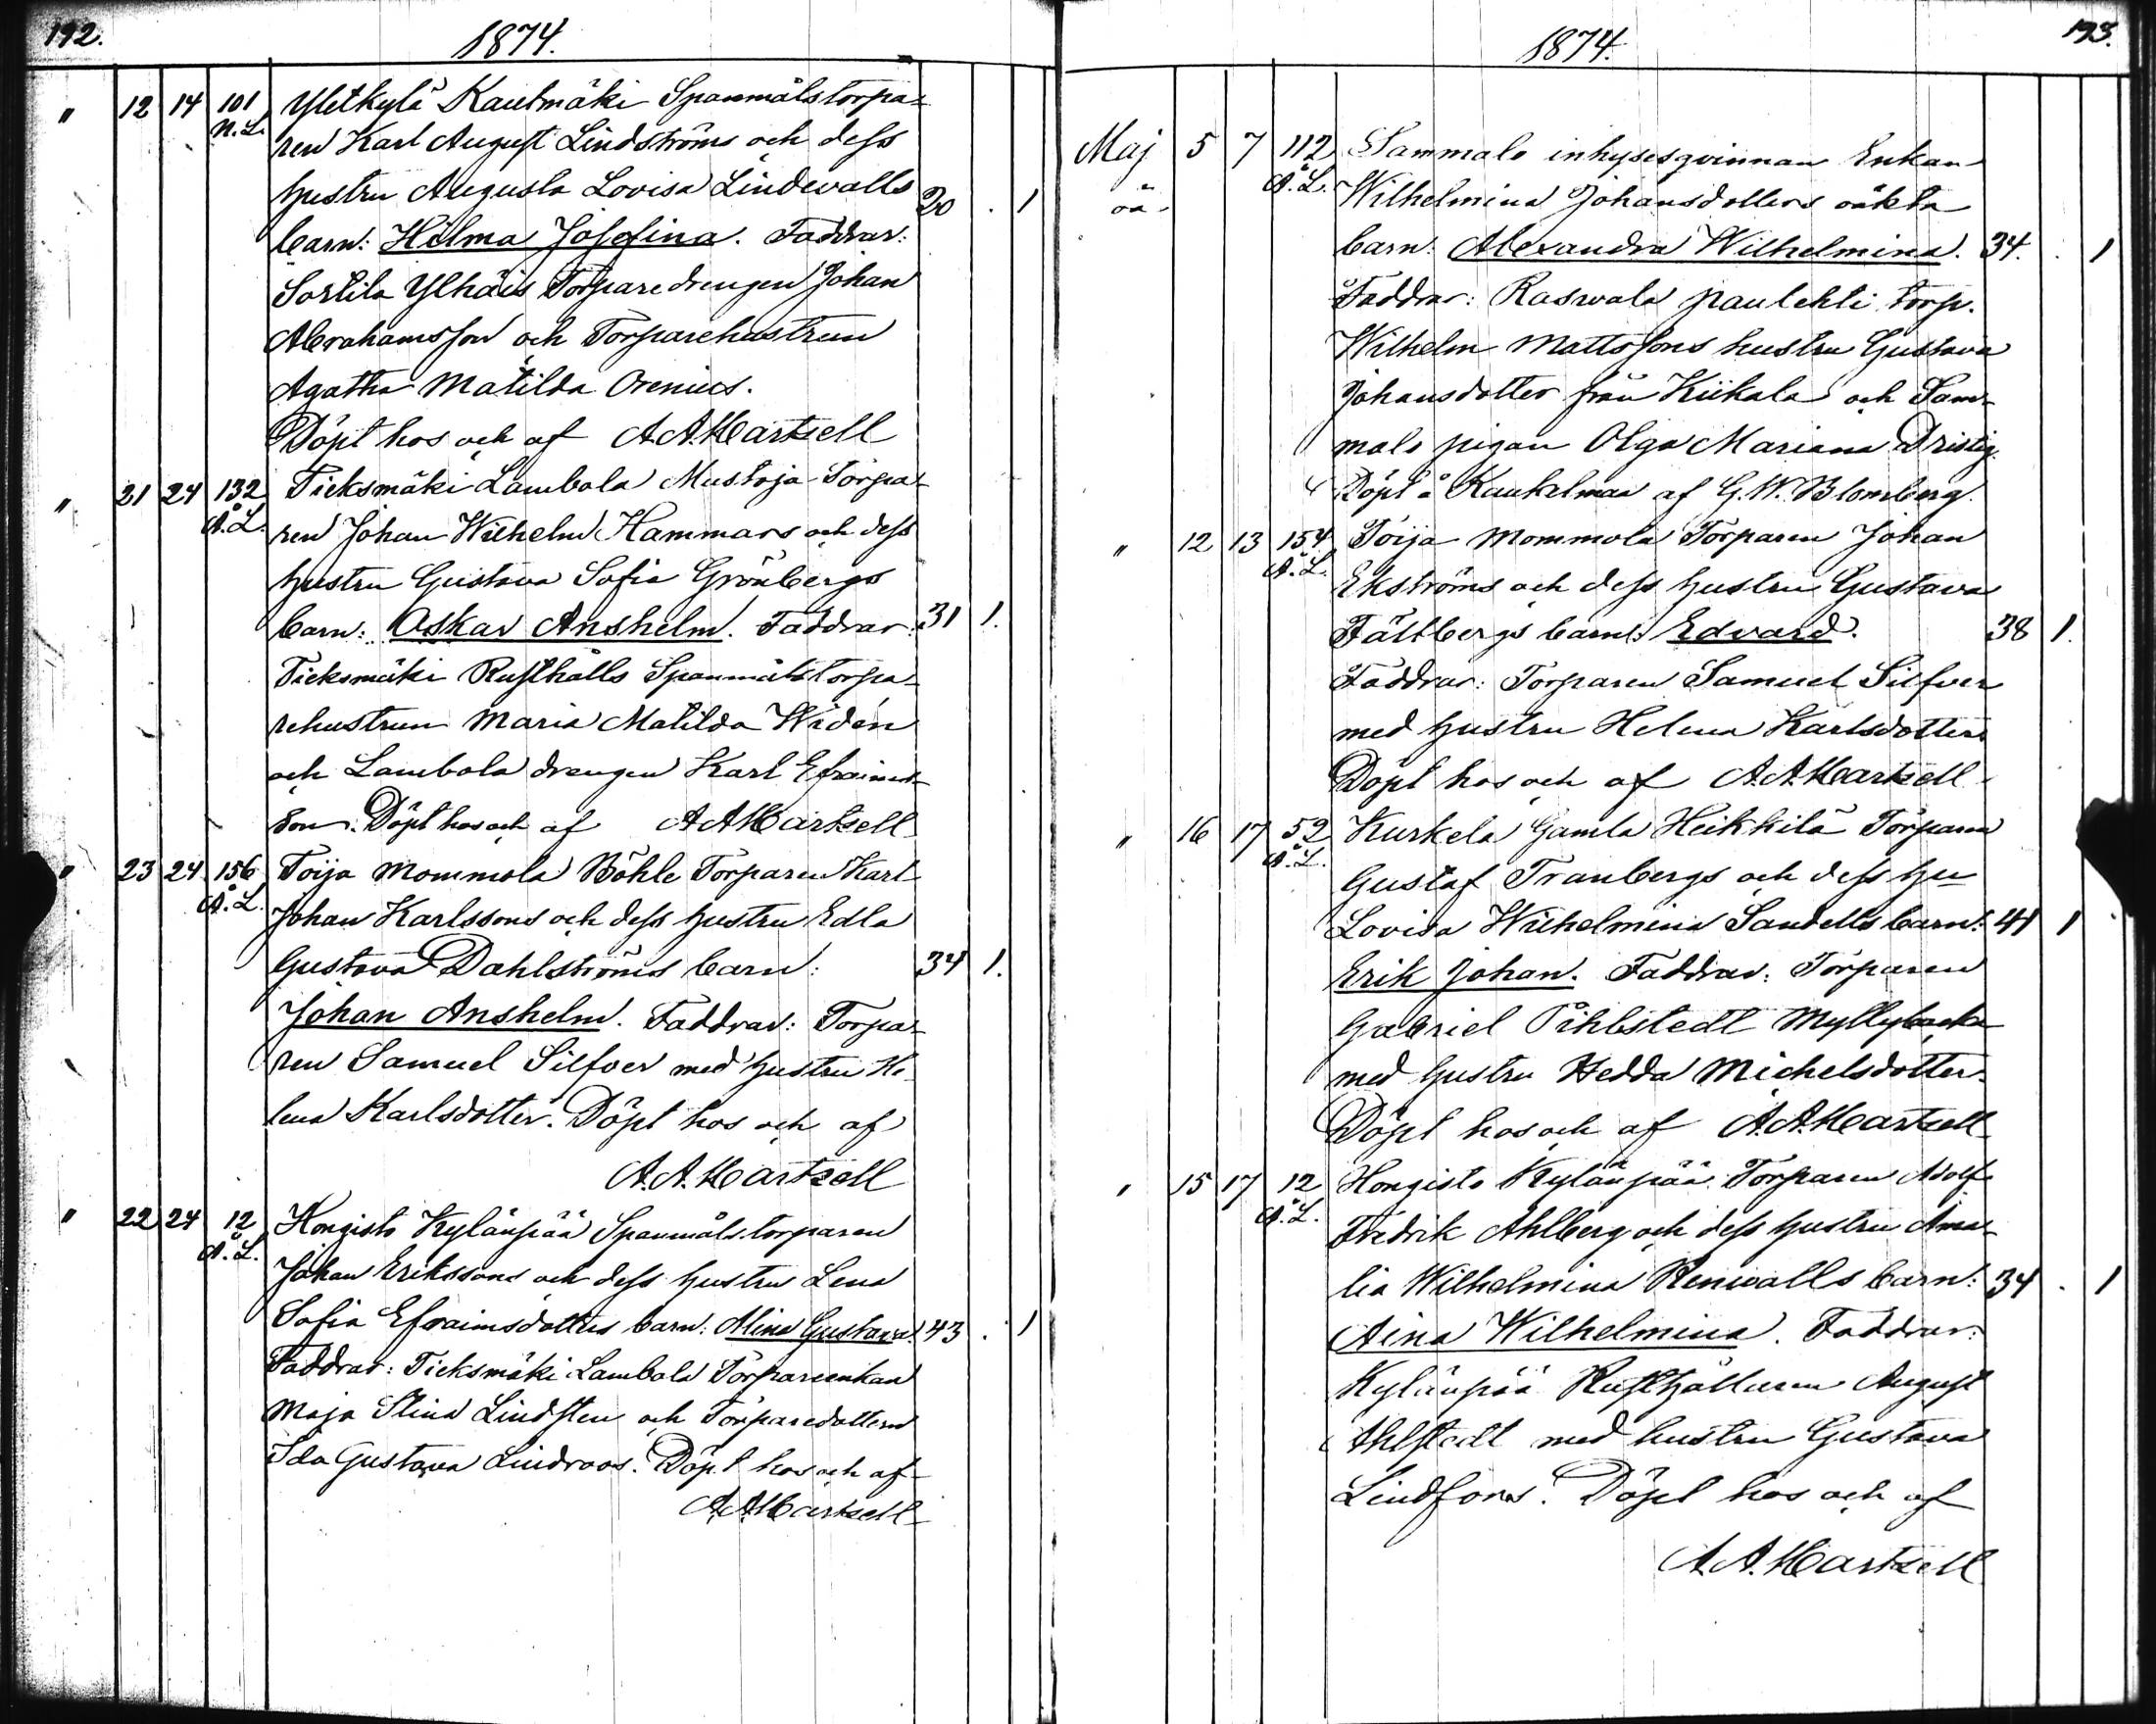 192.
1874.
" 12 14 101 Yletkylä Kautmäki Spanmålstorpa-
N.L. ren Karl August Lindströms och dess
hustru Augusta Lovisa Lindevalls 20 . 1
barn: Hilma Josefina. Faddrar:
Sortila Ylhäis Torparedrengen Johan
Abrahamsson och Torparehustrun
Agatha Matilda Orenius.
Döpt hos och af A.A. Hartzell
" 21 24 132 Ticksmäki Lambola Mustoja Torpa-
Å.L. ren Johan Wilhelm Hammars och dess
hustru Gustava Sofia Grönbergs
barn: Oskar Anshelm. Faddrar: 31 1.
Ticksmäki Rusthålls Spanmålstorpa-
rehustrun Maria Matilda Widén
och Lambola drengen Karl Efraims-
son. Döpt hos och af A A Hartzell
" 23 24 156 Toija Mommola Böhle Torparen Karl
Å.L. Johan Karlssons och dess hustru Edla
Gustava Dahlströms barn: 34 1.
Johan Anshelm. Faddrar: Torpa-
ren Samuel Silfver med hustru He-
lena Karlsdotter. Döpt hos och af
A.A. Hartzell
" 22 24 12 Hongisto Kylänpää Spanmålstorparen
Å.L. Johan Erikssons och dess hustru Lena
Sofia Efraimsdotters barn: Alina Gustava. 43 . 1
Faddrar: Ticksmäki Lambola Torpareenkan
Maja Stina Lindsten och Torparedottern
Ida Gustava Lindroos. Döpt hos och af
A.A. Hartzell
193.
1874.
Maj 5 7 112 Sammalo inhysesqvinnan Enkan
oä. Å.L. Wilhelmina Johansdotters oäkta
barn: Alexandra Wilhelmina. 34. . 1
Faddrar: Raswala Paulehti torp.
Wilhelm Mattssons hustru Gustava
Johansdotter från Kiikala och Sam-
malo pigan Olga Mariana Dristig.
Döpt å Kaukelmaa af G.W. Blomberg.
" 12 13 154 Toija Mommola Torparen Johan
Å.L. Ekströms och dess hustru Gustava
Fältbergs barn: Edvard. 38 1.
Faddrar: Torparen Samuel Silfver
med hustru Helena Karlsdotter.
Döpt hos och af A.A. Hartzell
" 16 17 52 Kurkela Gamla Heikkilä Torparen
Å.L. Gustaf Tranbergs och dess hu
Lovisa Wilhelmina Sandells barn: 41 1
Erik Johan. Faddrar: Torparen
Gabriel Pihlstedt Myllybacka
med hustru Hedda Michelsdotter.
Döpt hos och af A.A. Hartzell
" 15 17 12 Hongisto Kylänpää Torparen Adolf
Å.L. Fredrik Ahlberg och dess hustru Ama-
lia Wilhelmina Renwalls barn: 34 . 1
Aina Wilhelmina. Faddrar:
Kylänpää Rusthållaren August
Ahlstedt med hustru Gustava
Lindfors. Döpt hos och af
A.A. Hartzell